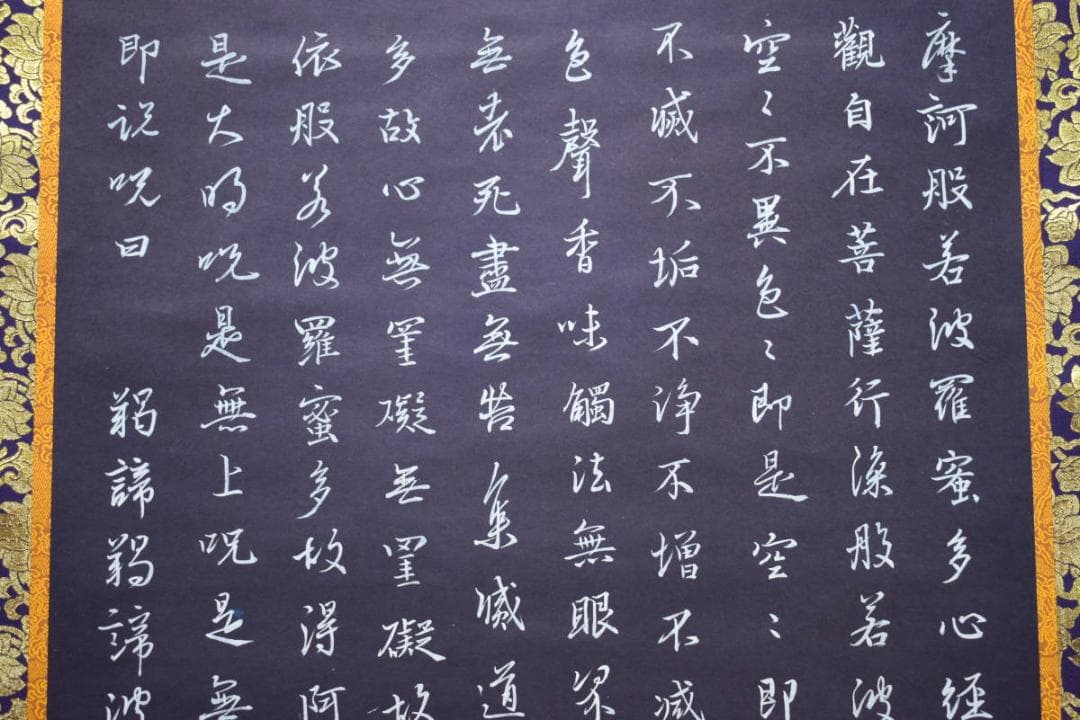 摩訶般若波羅蜜多心経
觀自在菩薩行深般若波
空〻不異色〻即是空〻即
不滅不垢不浄不增不減
色聲香味觸法無眼界
無老死盡無苦集滅道
多故心無罣礙無罣礙故
依般若波羅蜜多故得阿
是大明呪是無上呪是無
即説呪曰 羯諦羯諦波